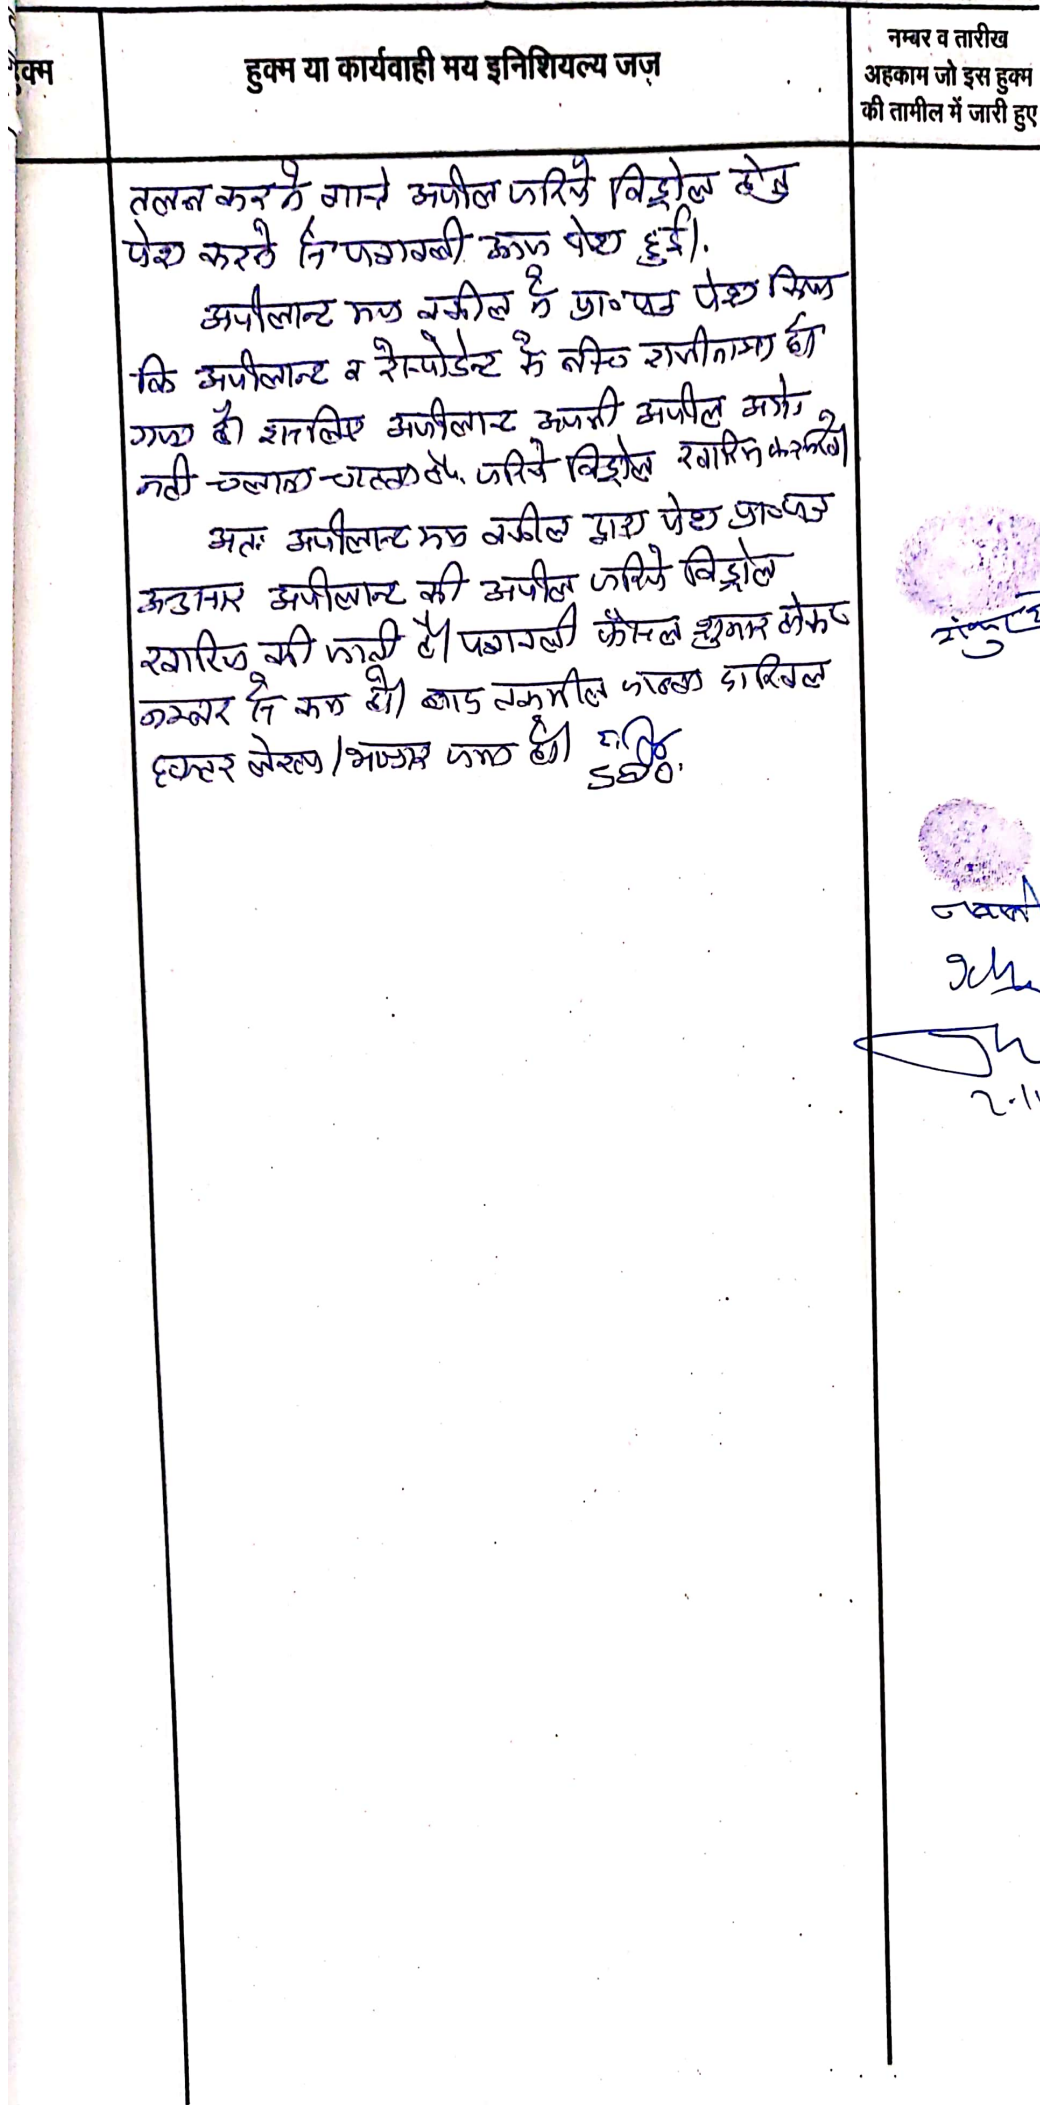 हुक्म
हुक्म या कार्यवाही मय इनिशियल्य जज़
नम्बर व तारीख
अहकाम जो इस हुक्म
की तामील में जारी हुए
तलब करने वास्ते अपील जरिये विड्रोल हेतु
पेश करने पत्रावली आज पेश हुई।
अपीलान्ट मय वकील ने प्रा०पत्र पेश किया
कि अपीलान्ट व रेस्पोडेन्ट के बीच राजीनामा हो
गया है। इसलिए अपीलान्ट अपनी अपील आगे
नही चलाना चाहता है। जरिये विड्रोल खारिज
अतः अपीलान्ट मय वकील द्वारा पेश प्रा०पत्र
अनुसार अपीलान्ट की अपील जरिये विड्रोल
खारिज की जाती है। पत्रावली फैसल शुमार होकर
नम्बर से कम हो। बाद तकमील जाब्ता दाखिल
दफ्तर हो।